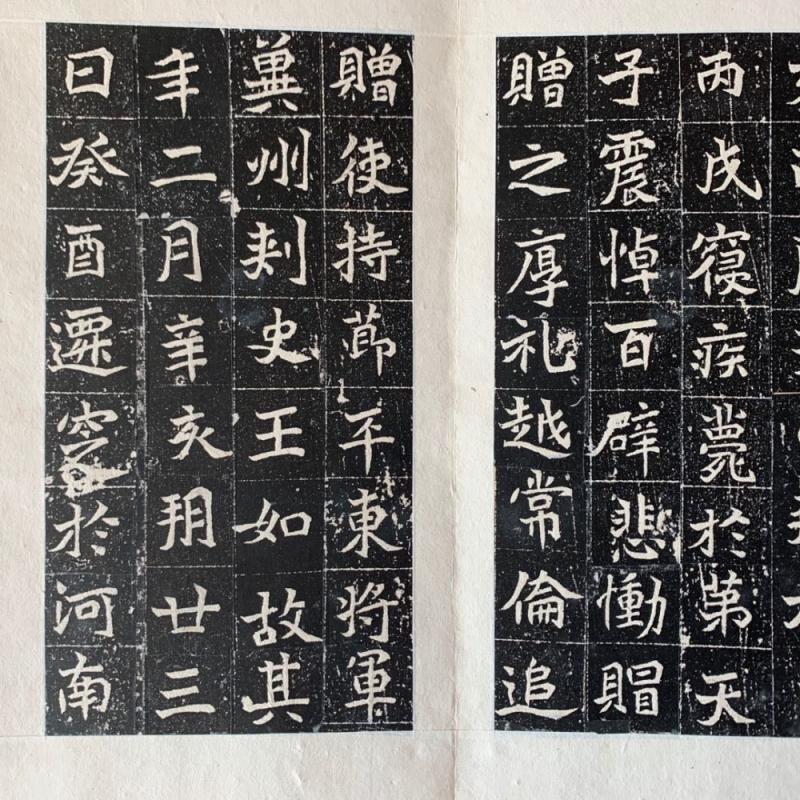 丙戌寢疾薨於第天
子震悼百辟悲慟賵
贈之厚礼越常倫追
贈使持節平東將軍
冀州刺史王如故其
年二月辛亥朔廿三
日癸酉遷窆於河南